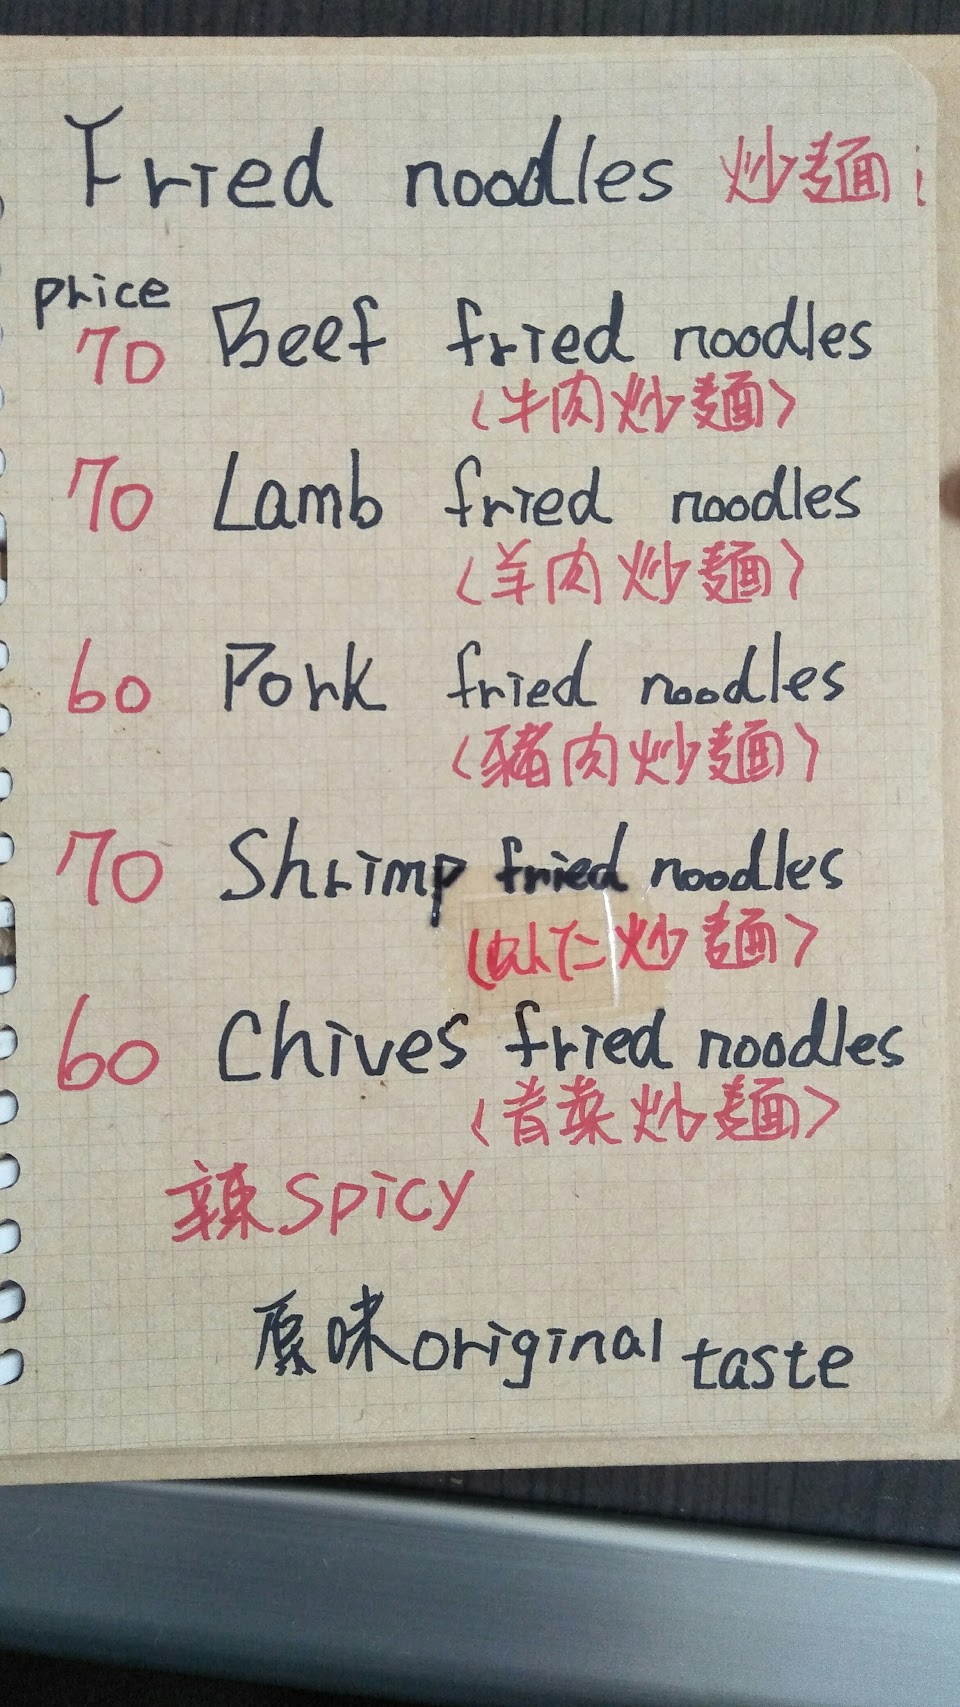 Fried noodles 炒麵
price
70 Beef fried noodles
(牛肉炒麵)
70 Lamb fried noodles
(羊肉炒麵)
60 Pork fried noodles
(豬肉炒麵)
70 Shrimp fried noodles
(蝦仁炒麵)
60 Chives fried noodles
(青菜炒麵)
辣 spicy
原味 original taste